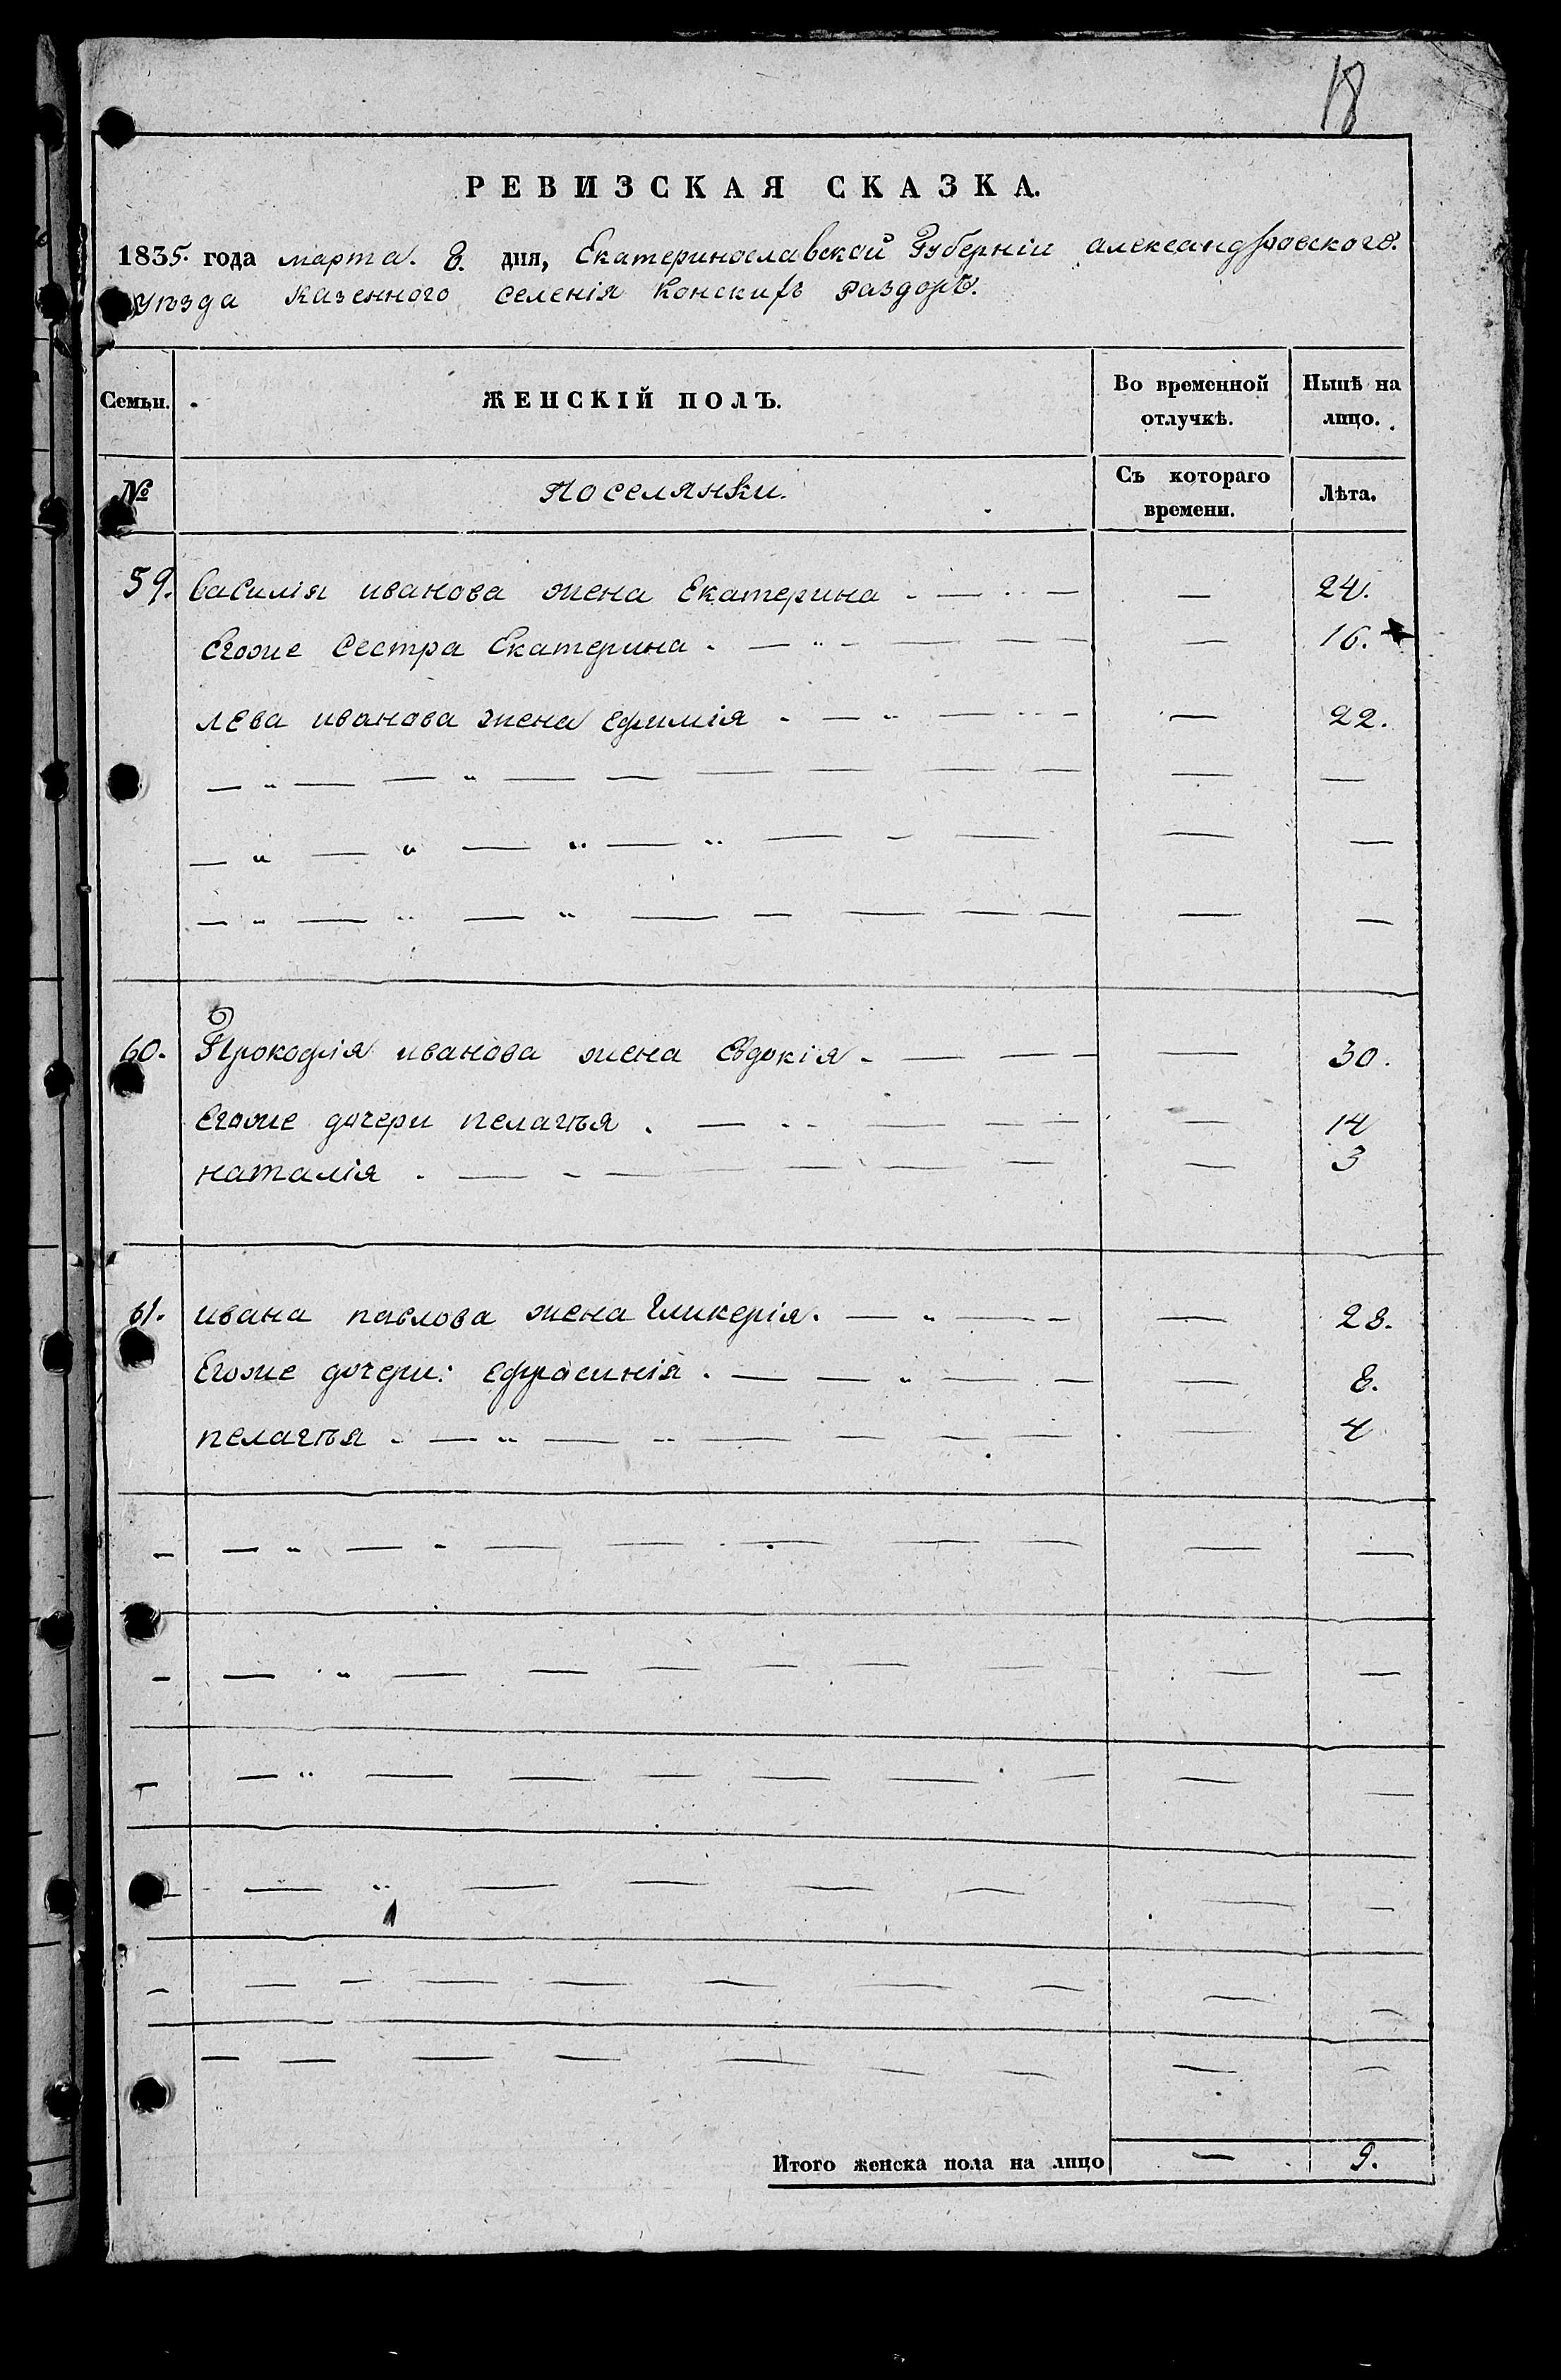 18
РЕВИЗСКАЯ СКАЗКА.
1835. года марта. 8. дня, Екатеринославской Губерніи александровского.
уѣзда казенного селенія Конскихъ раздоръ.
Семьи. ЖЕНСКІЙ ПОЛЪ. Во временной отлучкѣ. Нынѣ на лицо.
№ Поселянки. Съ котораго времени. Лѣта.
59. василія иванова жена Екатерина - — — 24.
Егоже Сестра Екатерина - — — 16.
лева иванова жена ефимія - — — 22.
60. Прокофія иванова жена евдокія - — — 30.
Егоже дочери пелагѣя . — — 14
наталія . — — 3
61. ивана павлова жена гликерія. — — 28.
Егоже дочери: ефрасинія . — — 8.
пелагѣя - — — 4
Итого женска пола на лицо — 9.